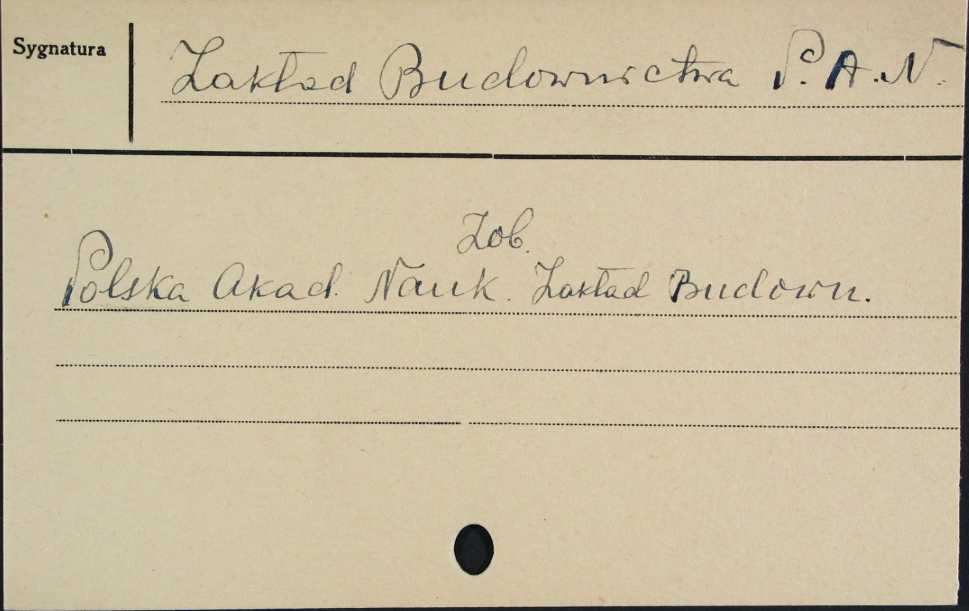 Sygnatura
Zakład Budownictwa P.A.N.
Zob.
Polska Akad. Nauk. Zakład Budown.